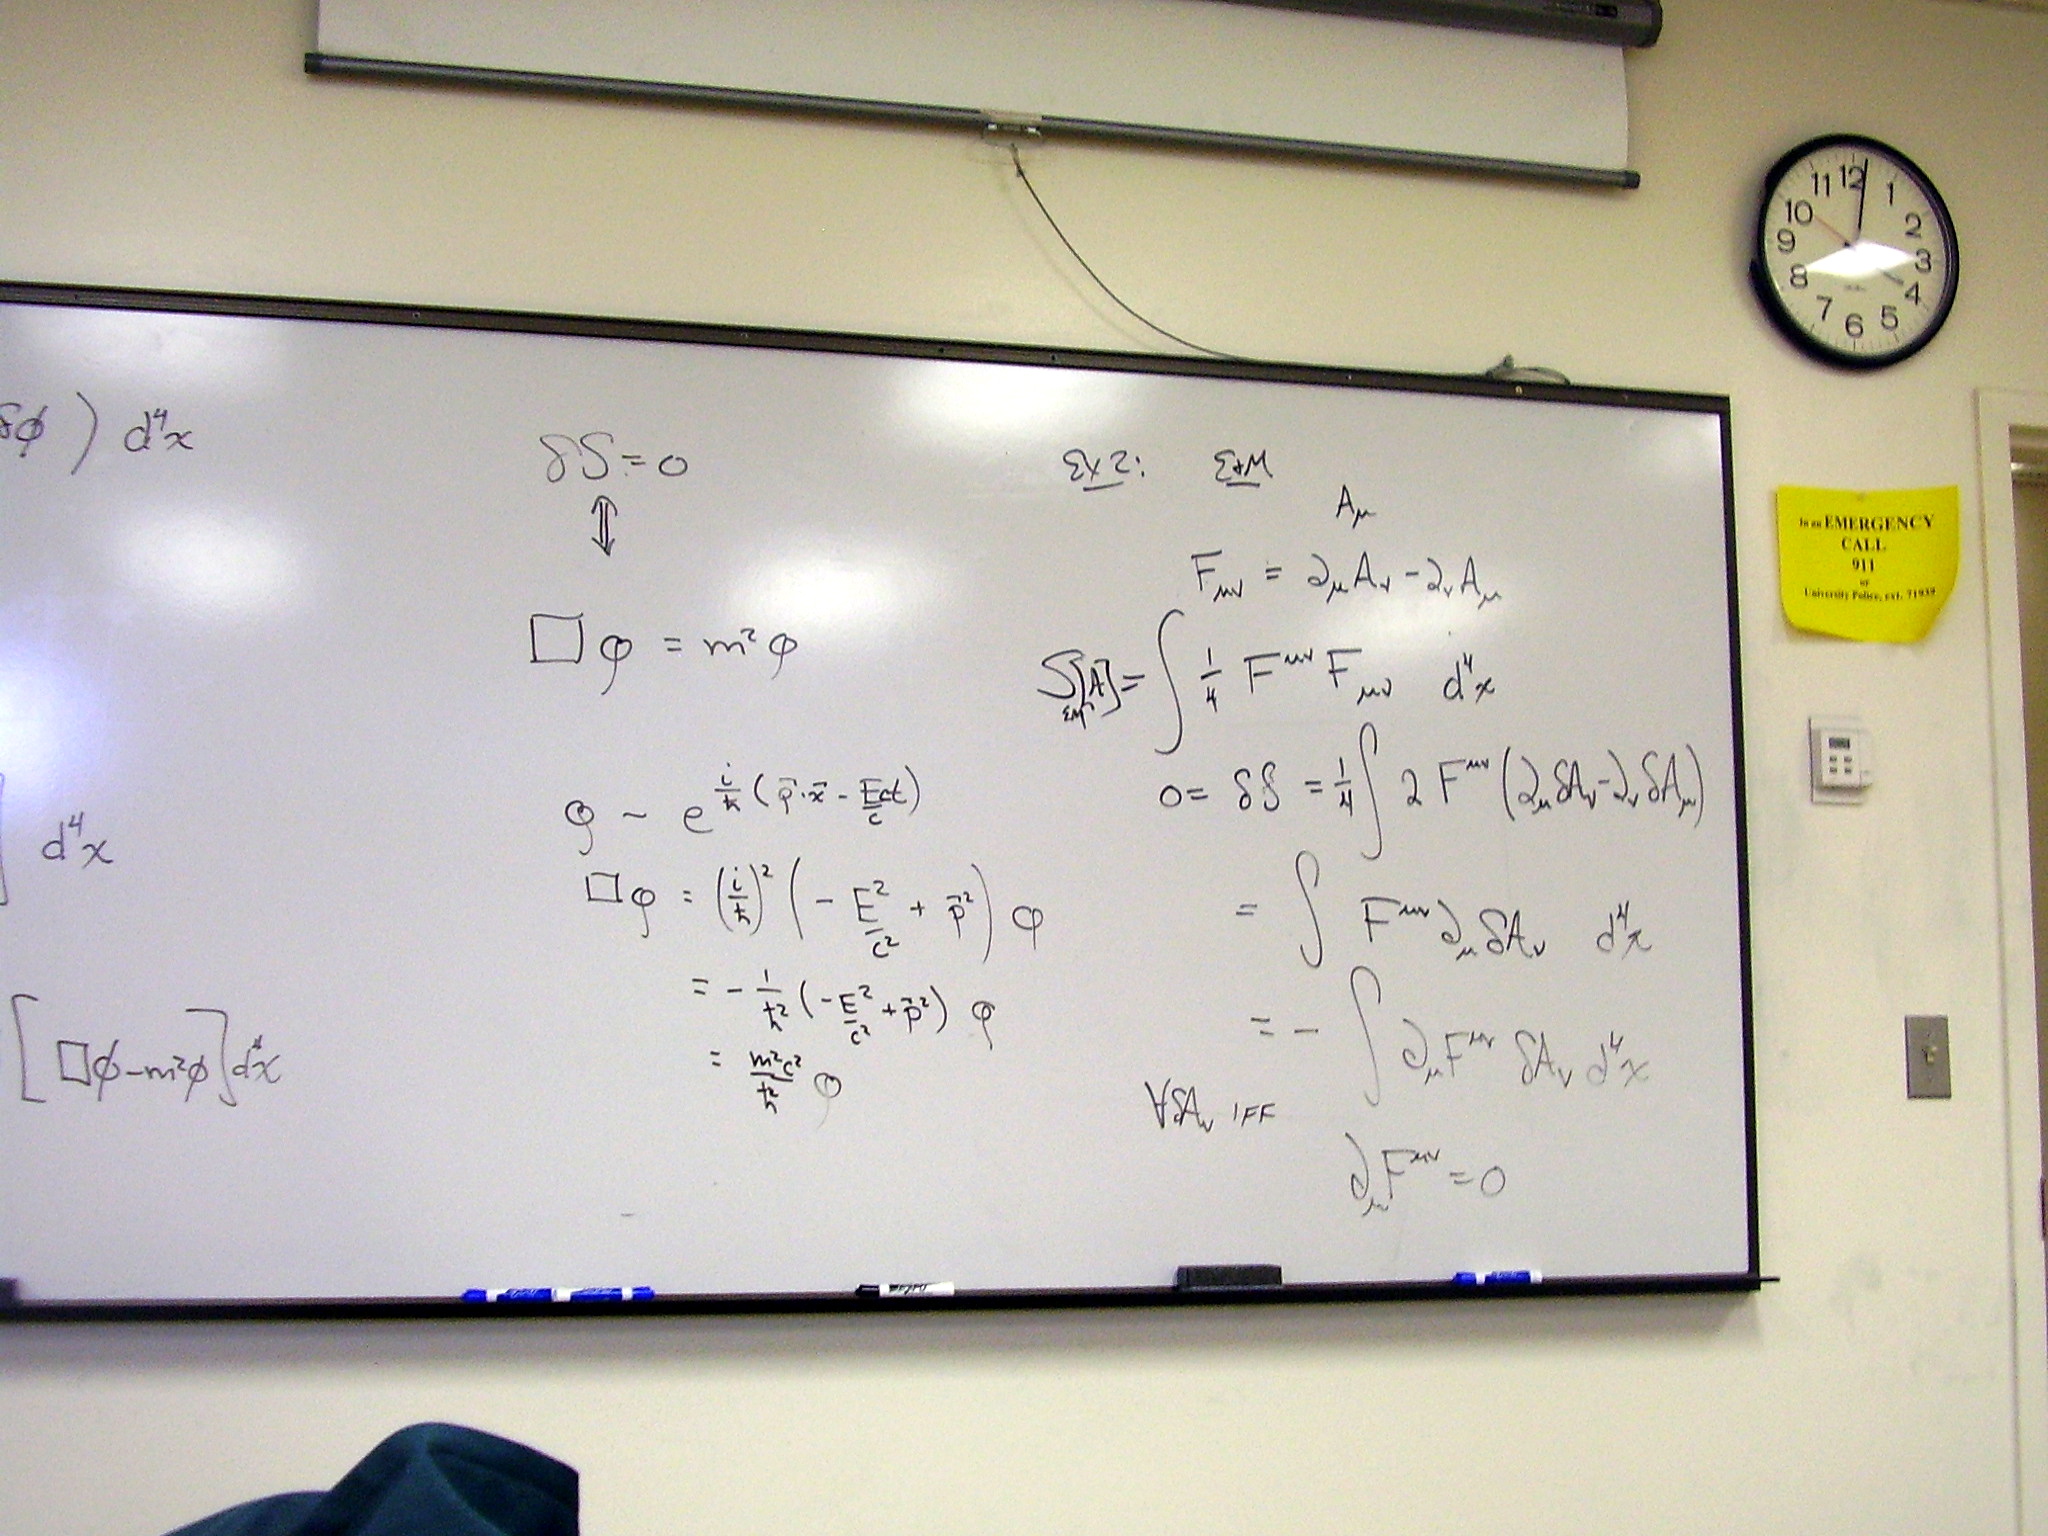 δφ ) d⁴x
] d⁴x
[ □φ - m²φ ] d⁴x
δS = 0
⇕
□φ = m²φ
φ ~ e^{i/ħ (p⃗·x⃗ - E/c ct)}
□φ = (i/ħ)² ( - E²/c² + p⃗² ) φ
= - 1/ħ² ( - E²/c² + p⃗² ) φ
= m²c²/ħ² φ
Ex 2: E+M
A_μ
F_μν = ∂_μ A_ν - ∂_ν A_μ
S_EM[A] = ∫ 1/4 F^μν F_μν d⁴x
0 = δS = 1/4 ∫ 2 F^μν ( ∂_μ δA_ν - ∂_ν δA_μ )
= ∫ F^μν ∂_μ δA_ν d⁴x
= - ∫ ∂_μ F^μν δA_ν d⁴x
∀ δA_ν IFF
∂_μ F^μν = 0
11 12 1
10 2
9 3
8 4
7 6 5
In an EMERGENCY
CALL
911
or
University Police, ext. 71939